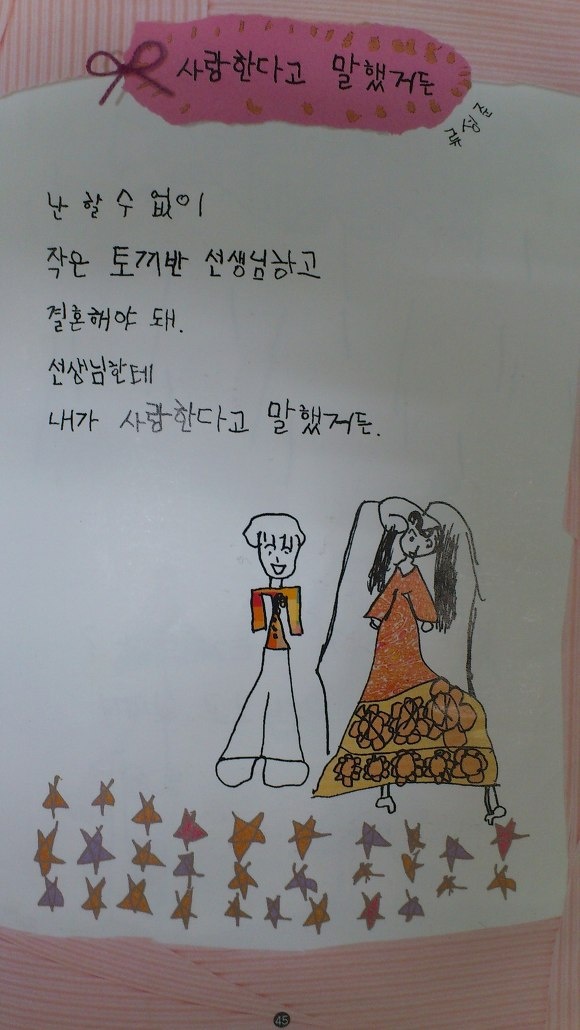 사랑한다고 말했거든
류성진
난 할 수 없이
작은 토끼반 선생님하고
결혼해야 돼.
선생님한테
내가 사랑한다고 말했거든.
45